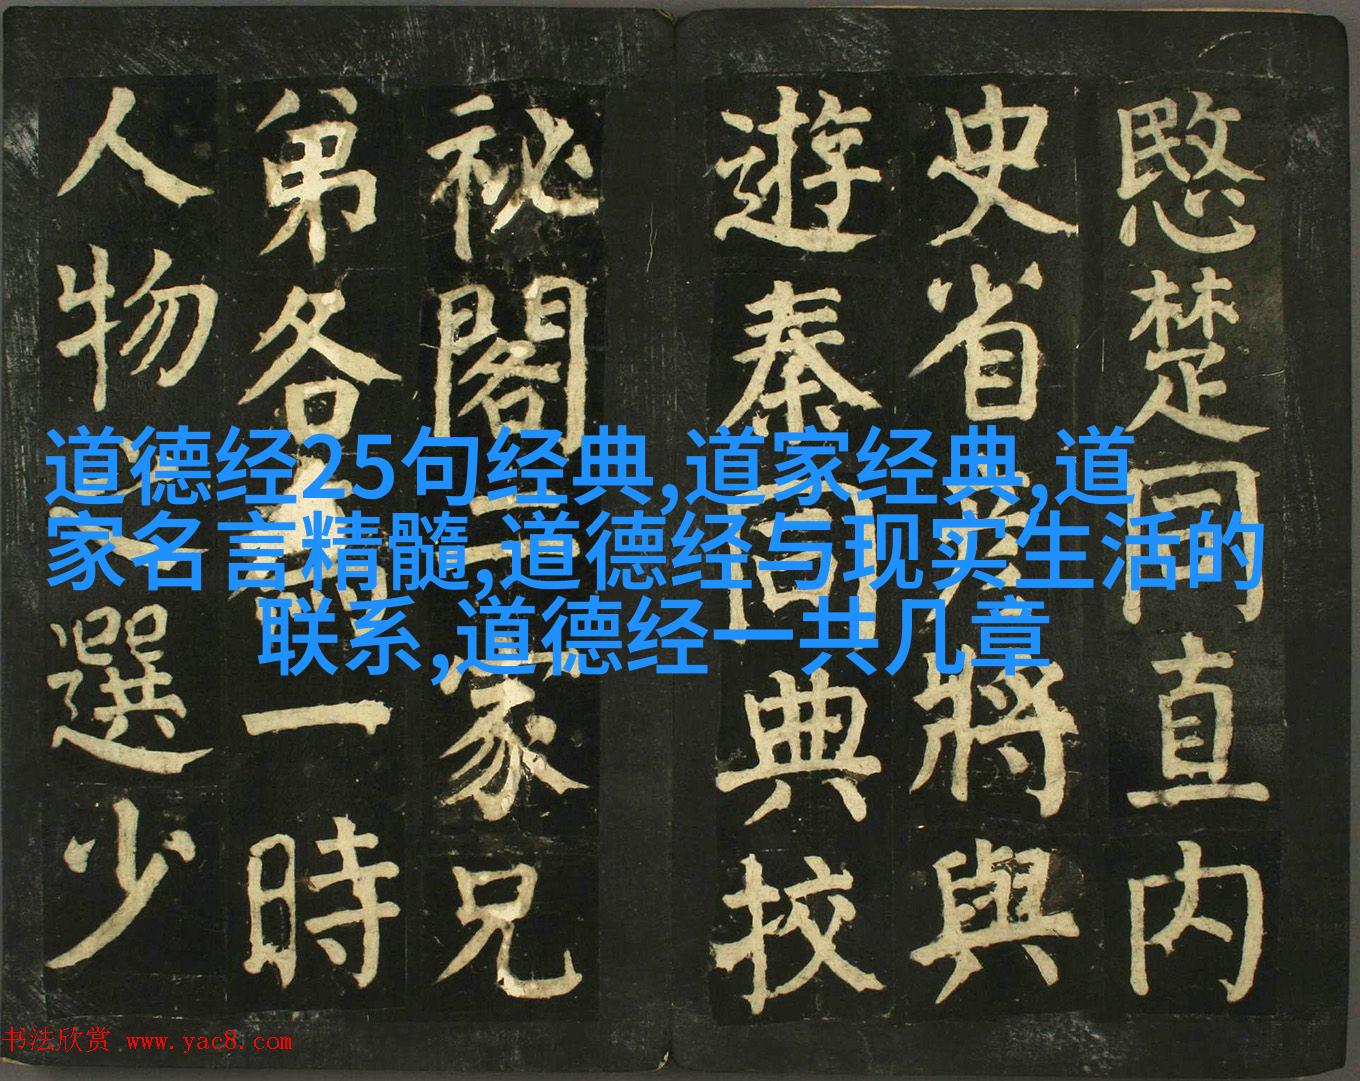 愍楚同直内
史省將與
遊秦同典校
祕閣二家兄
弟各一時
人物之選少
道德经25句经典,道家经典,道
家名言精髓,道德经与现实生活的
联系,道德经一共几章
书法欣赏 www.yac8.com